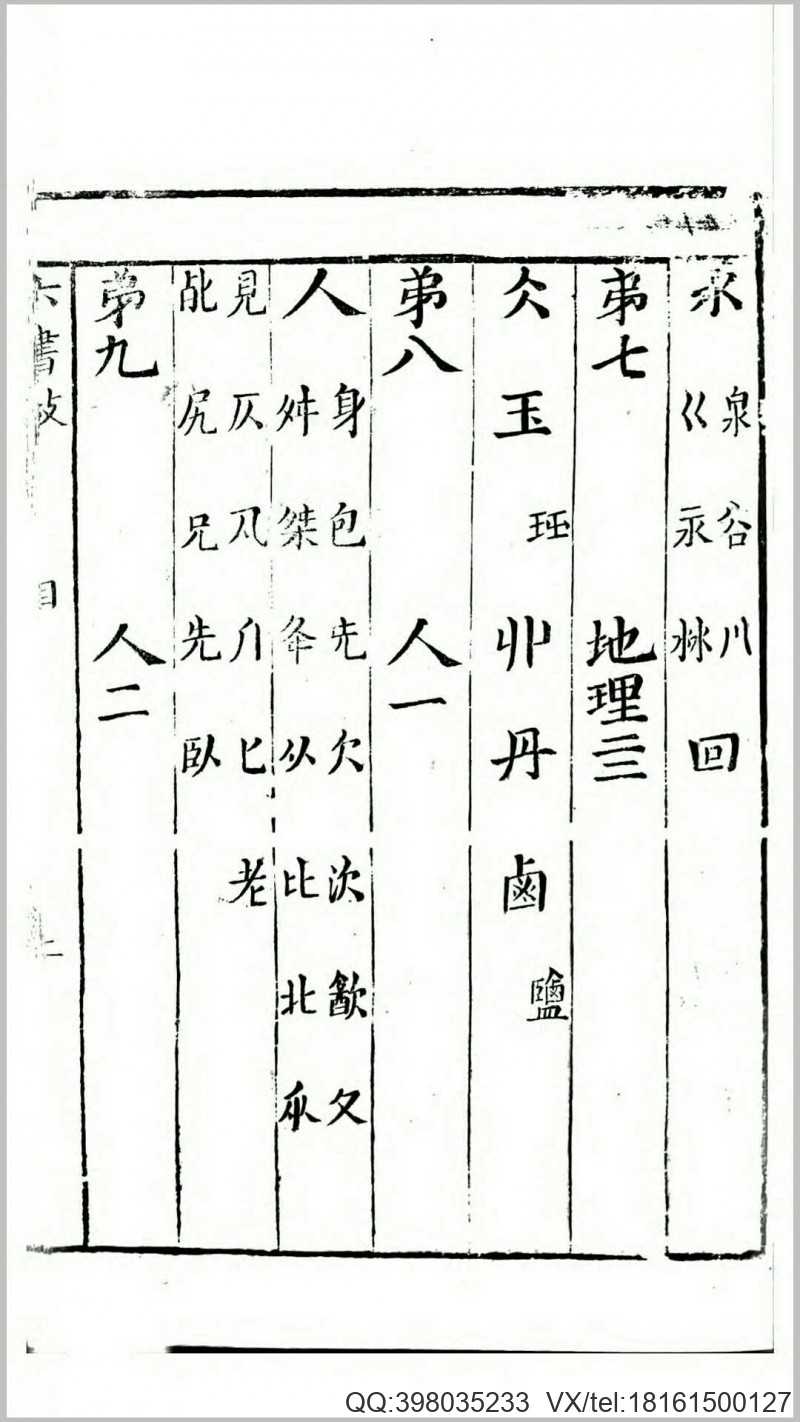 氺 泉 谷 川
巜 永 沝 回
弟七 地理亖
仌 玉 玨 丱 丹 鹵 鹽
弟八 人一
人 身 包 兂 欠 㳄 㱃 夂
舛 桀 夅 从 比 北 㐺
見 仄 卂 匕 老
尻 兄 先 臥
弟九 人二
六書故 目
QQ:398035233 VX/tel:18161500127